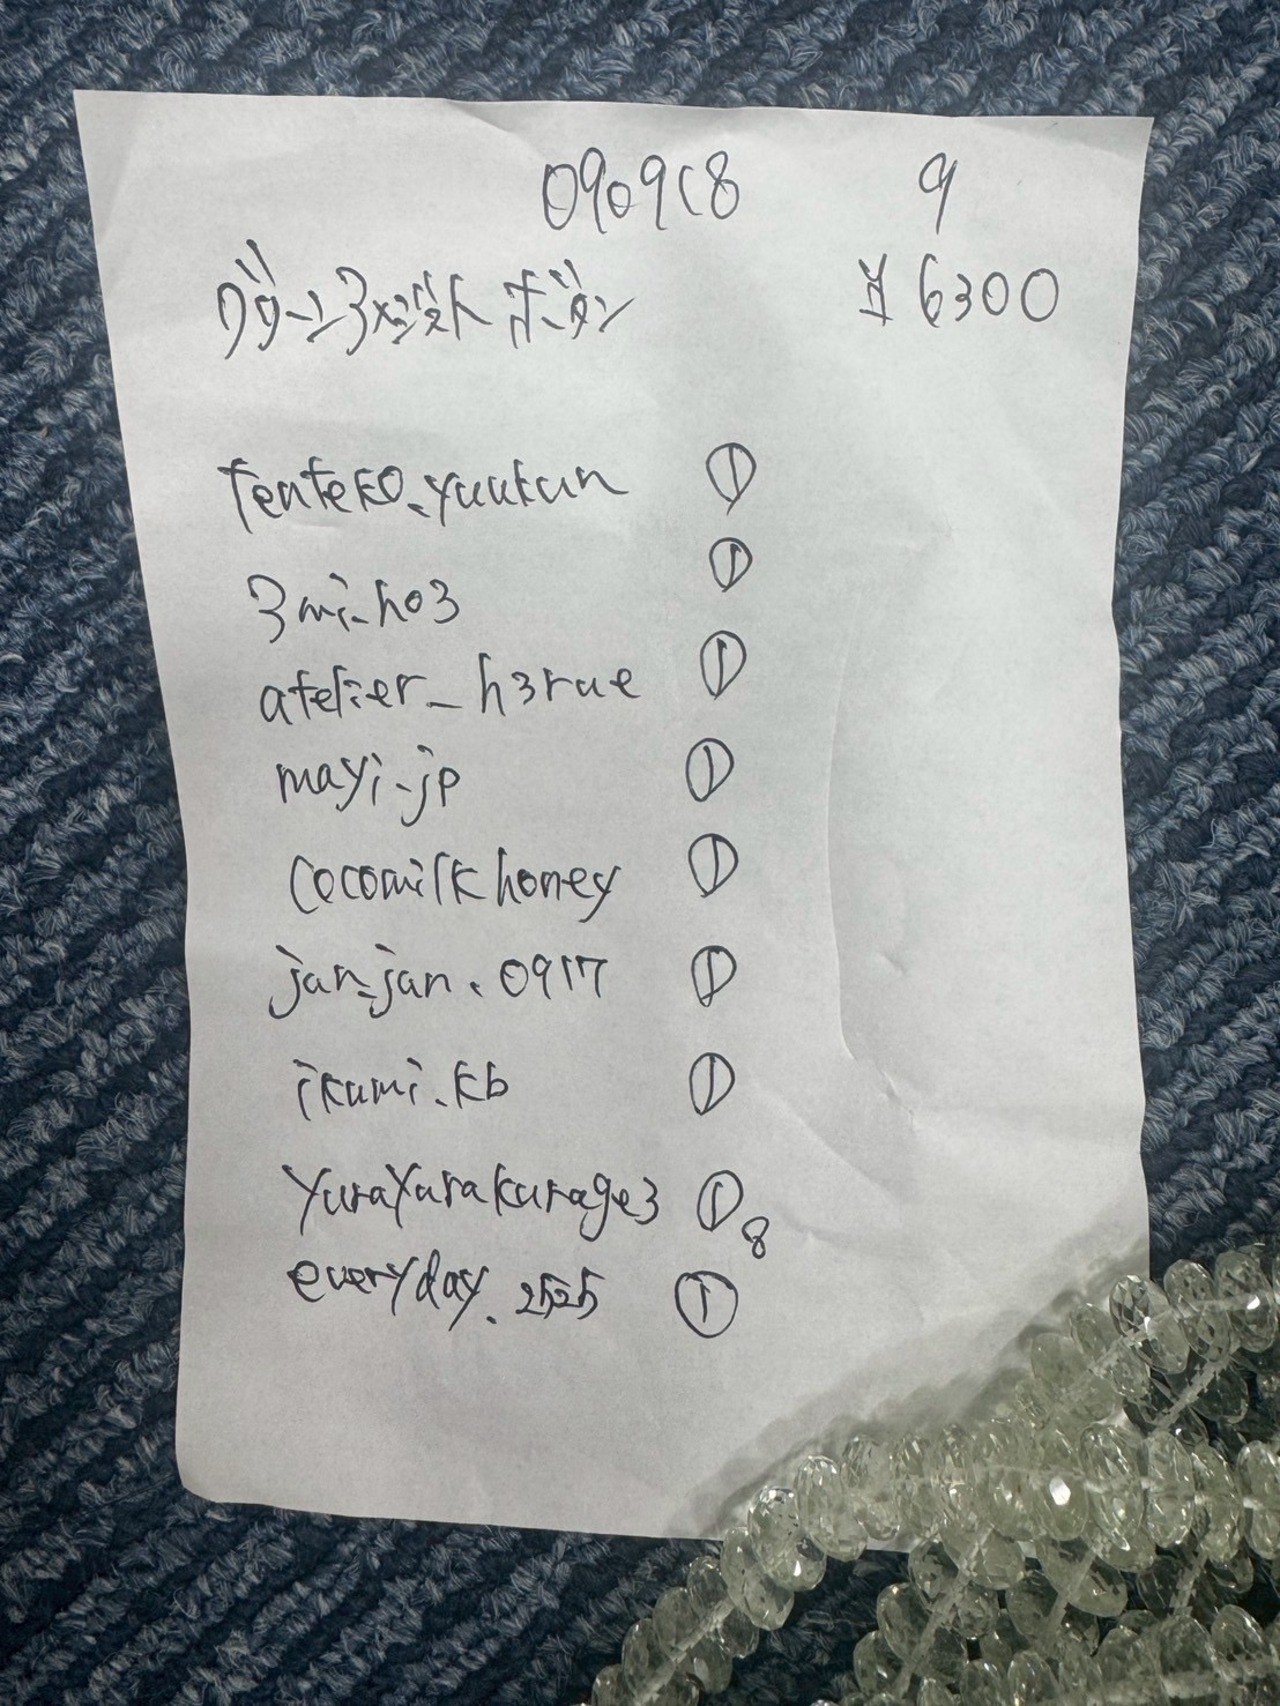 0909C8 9
¥6300
tenteko.yuukun ①
3mi_ho3 ①
atelier_h3rue ①
mayi_jp ①
cocomilkhoney ①
jan_jan.0917 ①
ikumi.kb ①
yurayurakurage3 ① 8
everyday.2525 ①